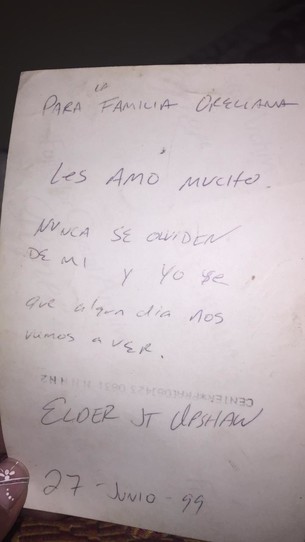 PARA LA FAMILIA ORELLANA
LES AMO MUCHO.
NUNCA SE OLVIDEN
DE MI Y YO SE
que algun dia nos
vamos a VER.
ELDER JT UPSHAW
27-JUNIO-99